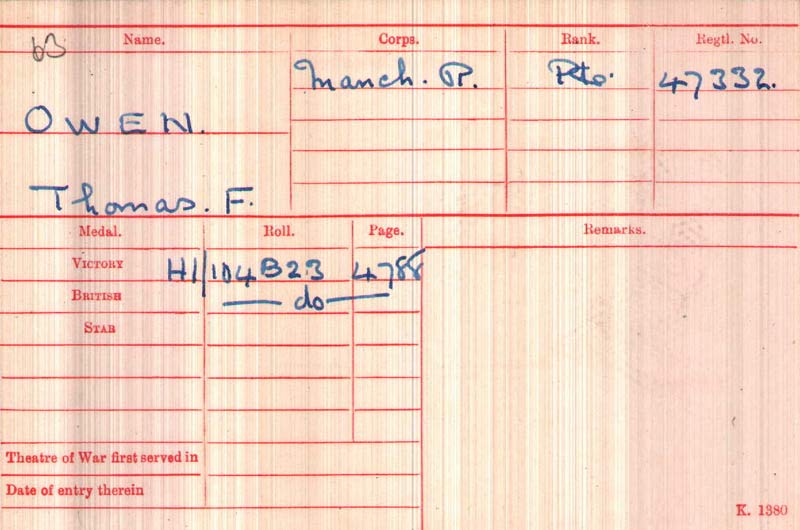 63
Name. Corps. Rank. Regtl. No.
Manch. R. Pte. 47332.
OWEN.
Thomas. F.
Medal. Roll. Page. Remarks.
VICTORY H1/104B23 4788
BRITISH — do —
STAR
Theatre of War first served in
Date of entry therein
K. 1380